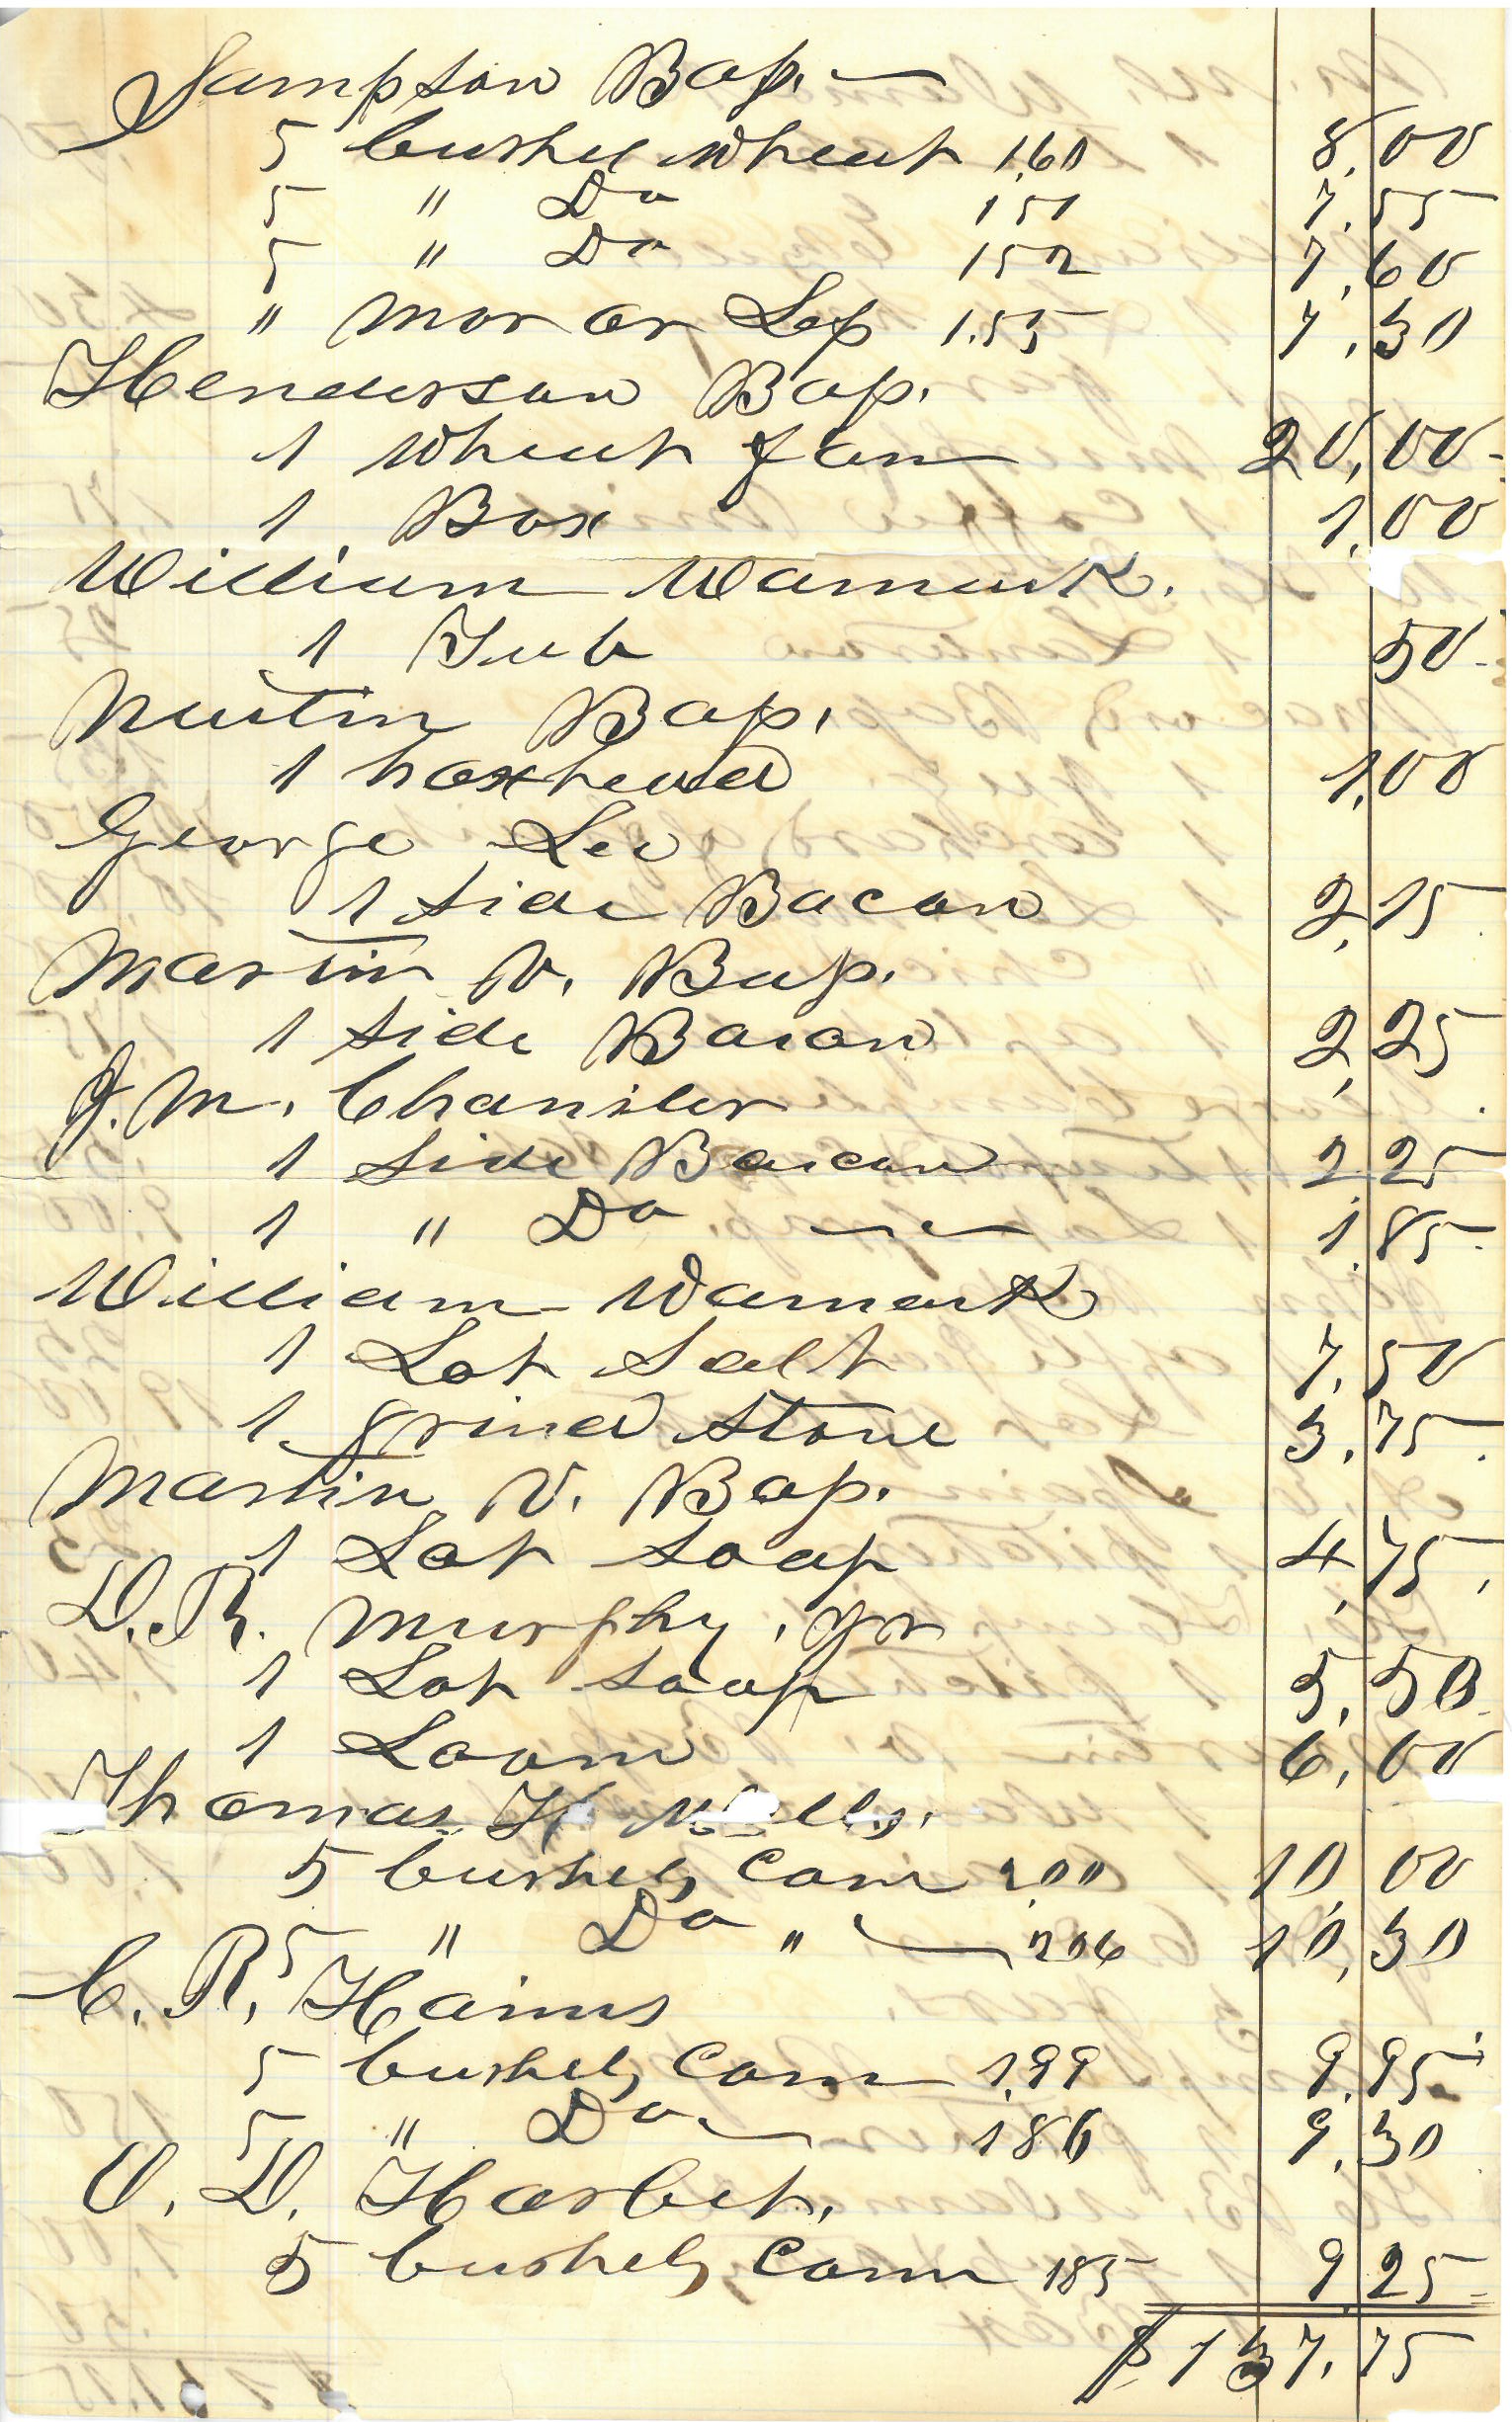 Sampson Bass.
5 bushel Wheat 1,60 8,00
5 " Do 151 7,55
5 " Do 152 7,60
" Mor or Less 1.55 7,30
Henderson Bass.
1 Wheat fan 20,00
1 Box 1,00
William Wamack.
1 Tub 50
Austin Bass.
1 hoxhead 1,00
George Lee
1 Side Bacon 2,15
Martin V. Bass.
1 Side Bacon 2,25
J. M. Chansler
1 Side Bacon 2,25
1 " Do 1,85
William Wamack
1 Lot Salt 7,50
1 grind Stone 3,75
Martin V. Bass.
1 Lot Soap 4,75
D. R. Murphy, Jr
1 Lot Soap 5,50
1 Loom 6,00
Thomas H
5 bushels Corn 2,00 10,00
5 " Do " 206 10,30
C. R. Haines
5 bushels Corn 1,99 9,95
5 " Do 186 9,30
O. D. Harbet.
5 bushels Corn 185 9,25
$137,75